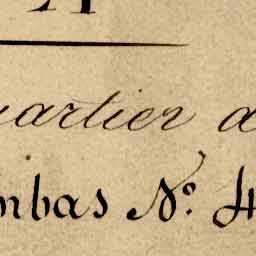 uartier d
mbas N.º 4